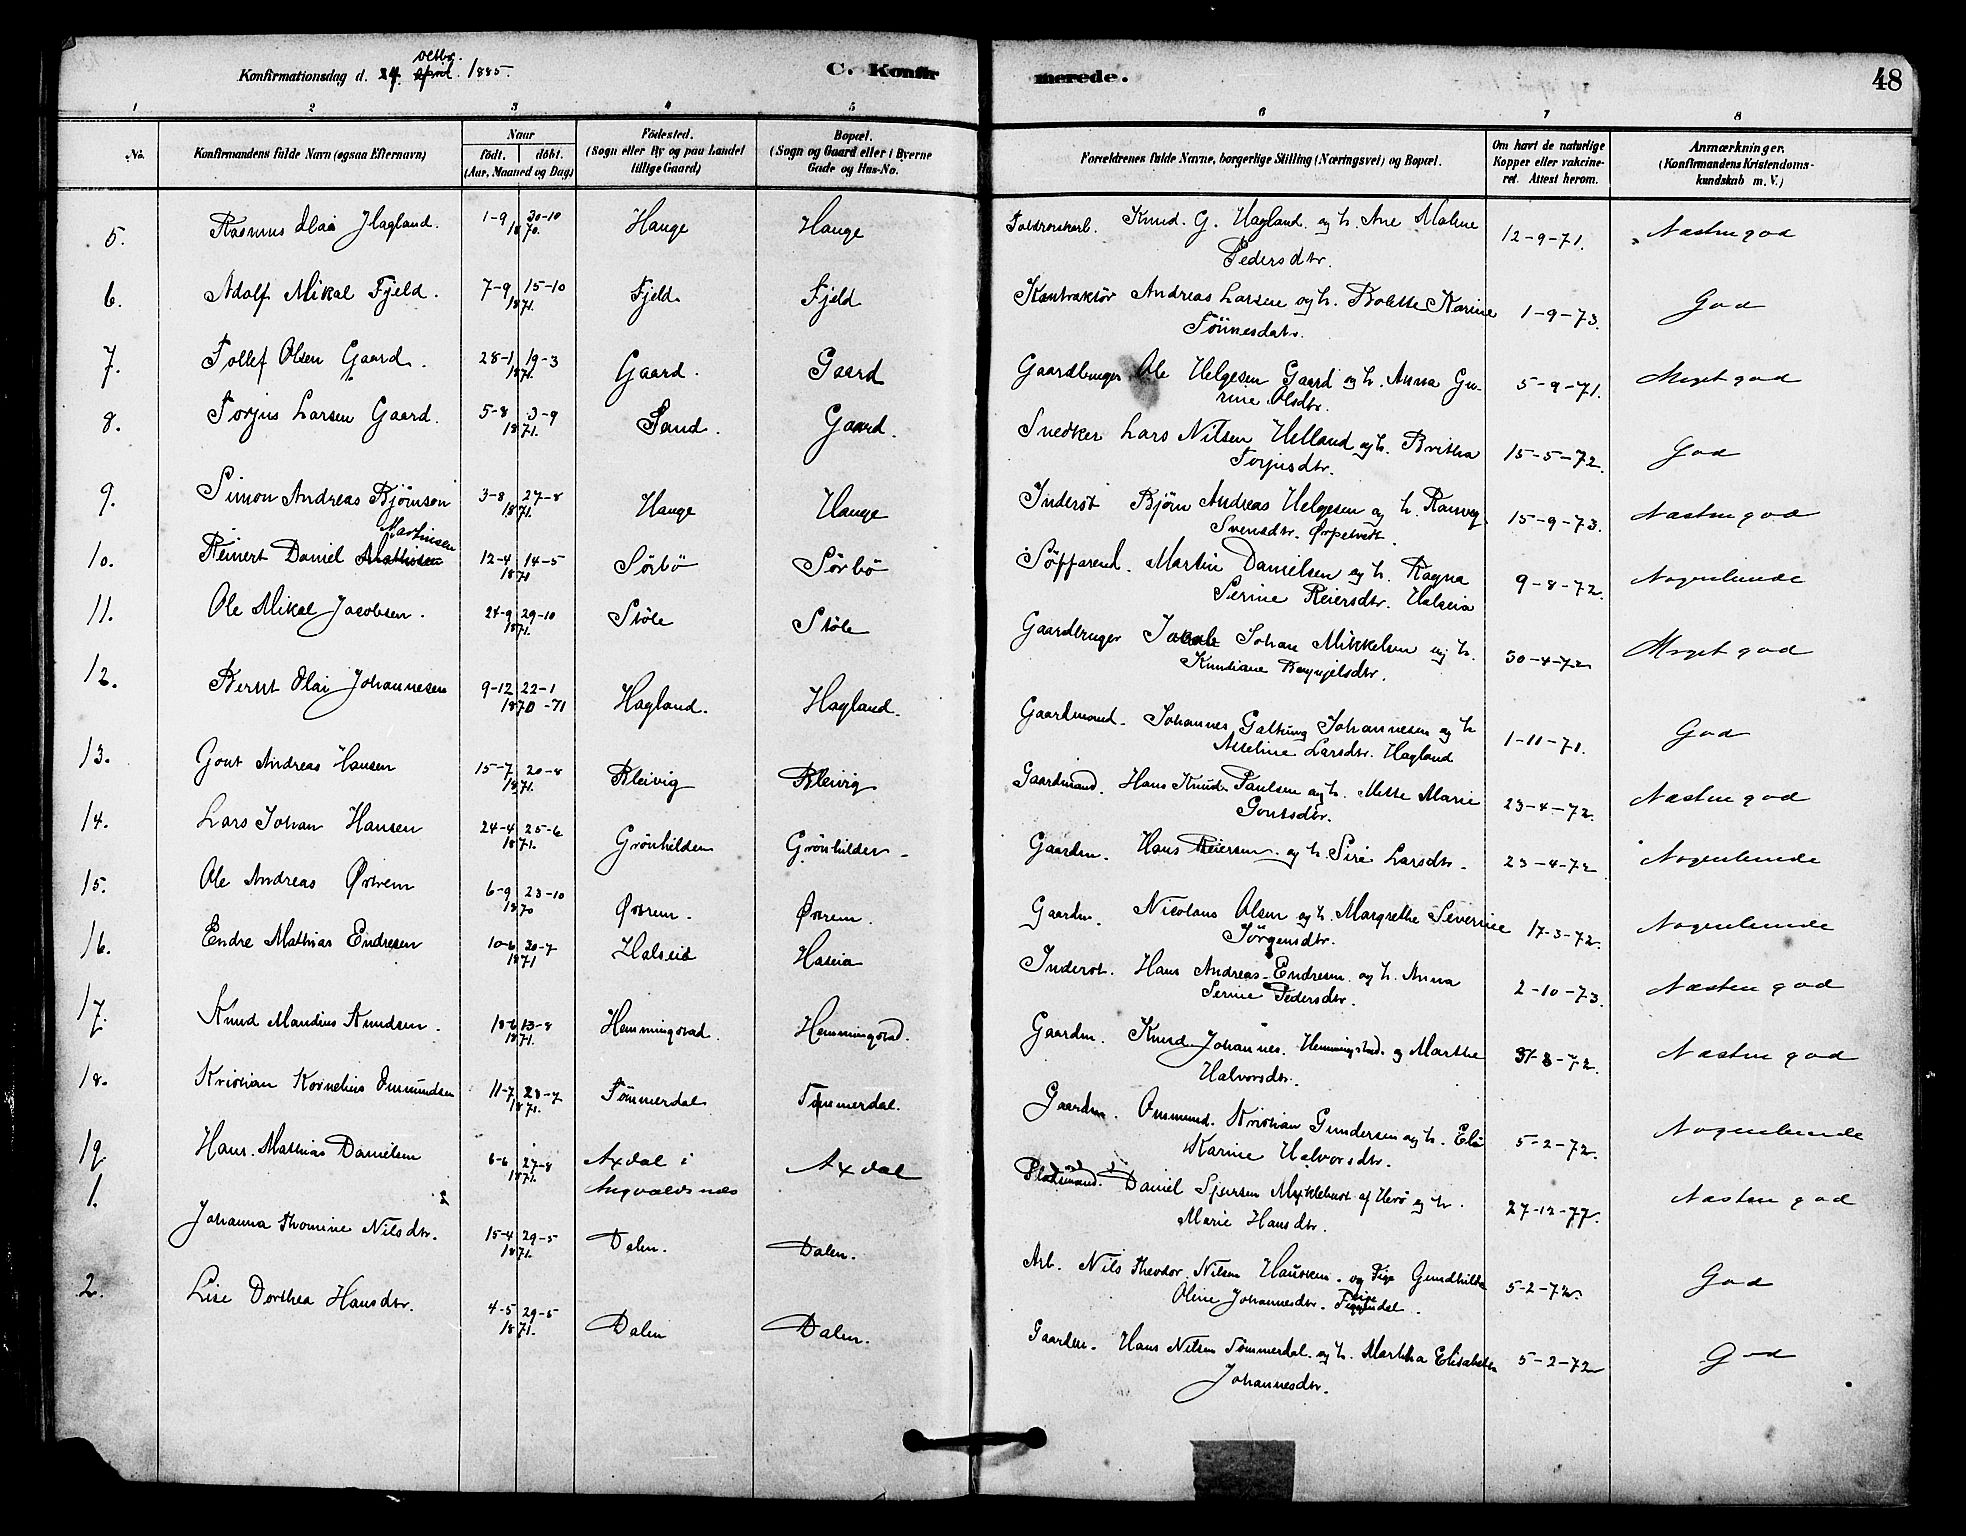 Konfirmationsdag d. 24. april octbr. 1885.
C. Konfirmerede.
48
1 2 3 4 5 6 7 8
No.
Konfirmandens fulde Navn (ogsaa Efternavn)
Naar
født. døbt.
(Aar, Maaned og Dag)
Fødested.
(Sogn eller By og paa Landet
tillige Gaard)
Bopæl.
(Sogn og Gaard eller i Byerne
Gade og Hus-No.
Forældrenes fulde Navne, borgerlige Stilling (Næringsvei) og Bopæl.
Om havt de naturlige
Kopper eller vakcine-
ret. Attest herom.
Anmærkninger.
(Konfirmandens Kristendoms-
kundskab m. V.)
5. Rasmus Olai Hagland. 1-9 30-10 1870. Hauge Hauge Knud. G. Hagland. og h. Ane Malene 12-9-71. Næsten god
Pedersdtr.
6. Adolf Mikal Fjeld. 7-9 15-10 1871. Fjeld Fjeld Kontraktør Andreas Larsen og h. Bolette Karine 1-9-73. God
Tønnesdatr.
7. Tollef Olsen Gaard. 28-1 19-3 1871. Gaard. Gaard Gaardbruger Ole Helgesen Gaard og h. Anna Gu- 5-9-71. Meget god
rine Olsdtr.
8. Torjus Larsen Gaard. 5-8 3-9 1871. Sand. Gaard. Snedker Lars Nilsen Helland og h. Britha 15-5-72. God
Torjusdtr.
9. Simon Andreas Bjørnsen 3-8 27-8 1871. Hauge Hauge Inderst Bjørn Andreas Helgesen og h. Ranveg 15-9-73. Næsten god
Svensdtr. Ørpetvedt.
10. Reinert Daniel Mathisen Martinsen 12-4 14-5 1871 Sørbø Sørbø Søfarend. Martin Danielsen og h. Ragna 9-8-72. Nogenlunde
Serine Reiersdtr. Halseia
11. Ole Mikal Jacobsen. 24-9 29-10 1871. Støle Støle Gaardbruger Jacob Johan Mikkelsen og h. 30-4-72 Meget god
Knudiane
12. Bernt Olai Johannesen 9-12 22-1 1870-71 Hagland. Hagland. Gaardmand. Johannes Galtung Johannesen og h 1-11-71. God
Asseline Larsdtr. Hagland
13. Gout Andreas Hansen 15-7 20-8 1871. Bleivig Bleivig Gaardmand. Hans Knud Paulsen og h. Mette Marie 23-4-72. Næsten god
Goutsdtr.
14. Lars Johan Hansen 24-4 25-6 1871. Grønhilden Grønhilden Gaardm. Hans Reiersen og h. Siri Larsdtr. 23-4-72 Nogenlunde
15. Ole Andreas Østrem 6-9 23-10 1870 Østrem. Østrem. Gaardm. Nicolaus Olsen og h. Margrethe Severine 17-3-72. Nogenlunde
Jørgensdtr.
16. Endre Mathias Endresen 10-6 30-7 1871 Halseid Haseia Inderst. Hans Andreas Endresen og h. Anna 2-10-73. Næsten god
Serine Pedersdtr.
17. Knud Mandius Knudsen. 18-6 13-8 1871. Hemmingstad. Hemmingstad. Gaardm. Knud Johannes. Hemmingstad. og Marthe 31-3-72. Næsten god
Halvorsdtr.
18. Kristian Kornelius Ommundsen 11-7 23-7 1871. Tømmerdal Tømmerdal. Gaardm. Ommund Kristian Gundersen og h. Eli 5-2-72. Nogenlunde
Karine Halvorsdtr.
19. Hans Mathias Danielsen 6-6 27-8 1871. Axdal i Axdal Pladsmand. Daniel Sjursen Myklebust af Herø og h. 27-12-77. Næsten god
Augvaldsnes
Marie Hansdtr.
1. Johanna Thomine Nilsdtr. 15-4 29-5 1871. Dalen. Dalen. Arb. Nils Theodor Nilsen Hausken. og Pige Gundhilda 5-2-72. God
Oline Johannesdtr.
2. Lise Dorthea Hansdtr. 4-5 29-5 1871. Dalen Dalen. Gaardm. Hans Nilsen Tømmerdal og h. Martha Elisabeth 5-2-72 God
Johannesdtr.